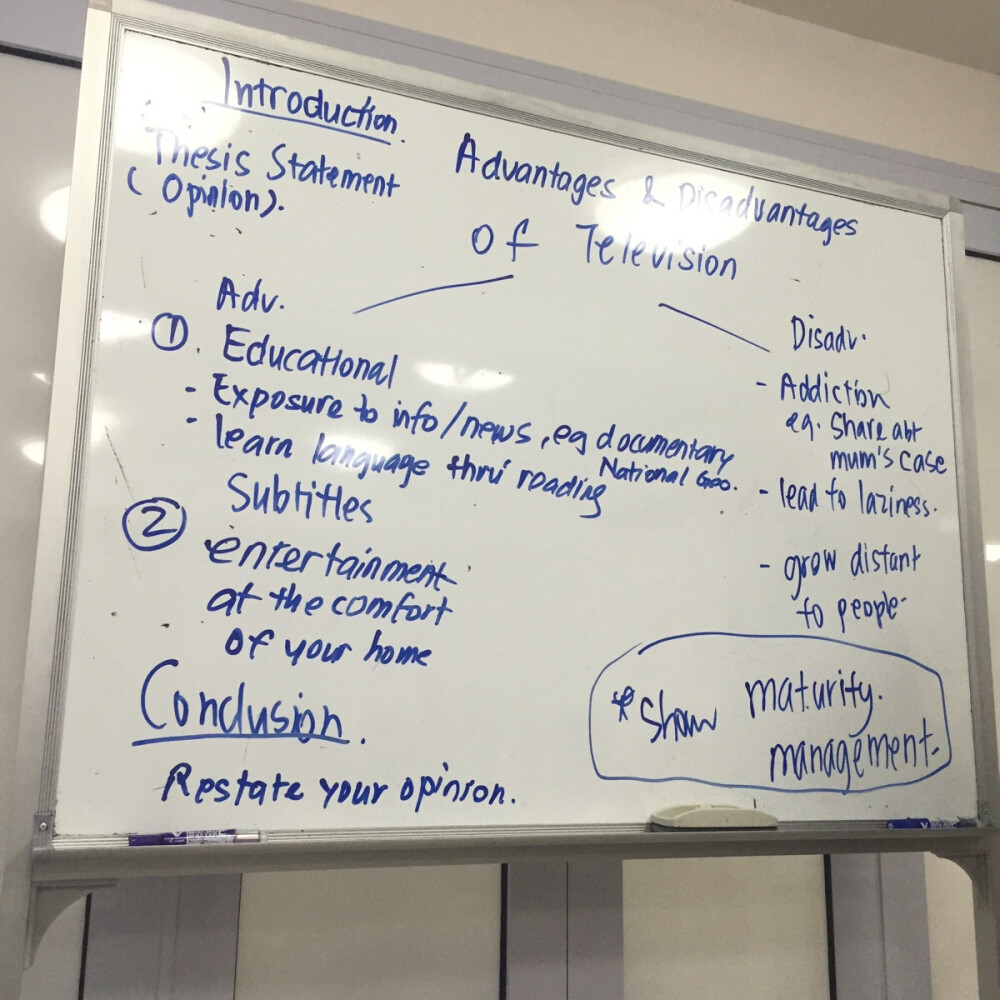 Introduction.
Thesis Statement
(Opinion).
Advantages & Disadvantages
Of Television
Adv.
① Educational
- Exposure to info/news, eg documentary
National Geo.
- learn language thru reading
Subtitles
② entertainment
at the comfort
of your home
Disadv.
- Addiction
eg. Share abt
mum's case
- lead to laziness.
- grow distant
to people
* Show maturity.
management.
Conclusion.
Restate your opinion.